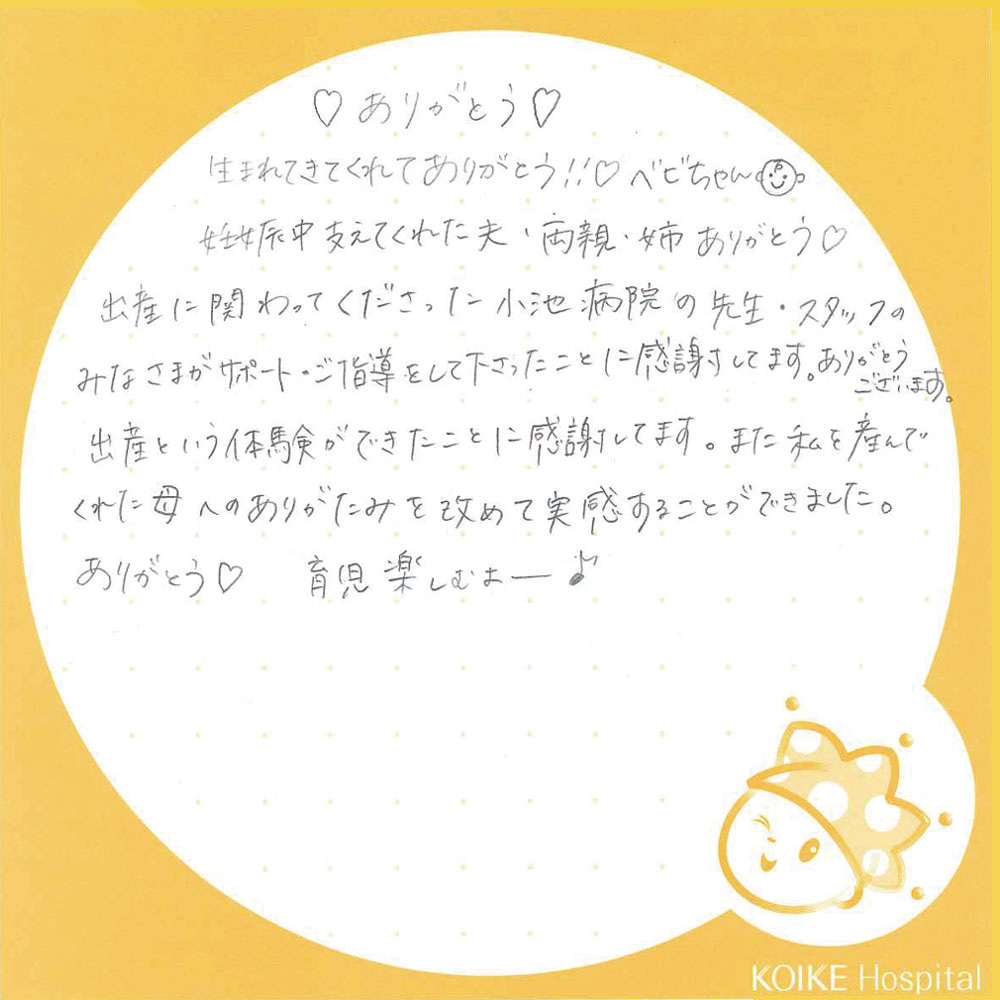 ♡ ありがとう ♡
生まれてきてくれてありがとう!!♡ ベビちゃん
妊娠中支えてくれた夫・両親・姉 ありがとう♡
出産に関わってくださった小池病院の先生・スタッフの
みなさまがサポート・ご指導をして下さったことに感謝してます。ありがとう
ございます。
出産という体験ができたことに感謝してます。また私を産んで
くれた母へのありがたみを改めて実感することができました。
ありがとう♡ 育児楽しむよー♪
KOIKE Hospital